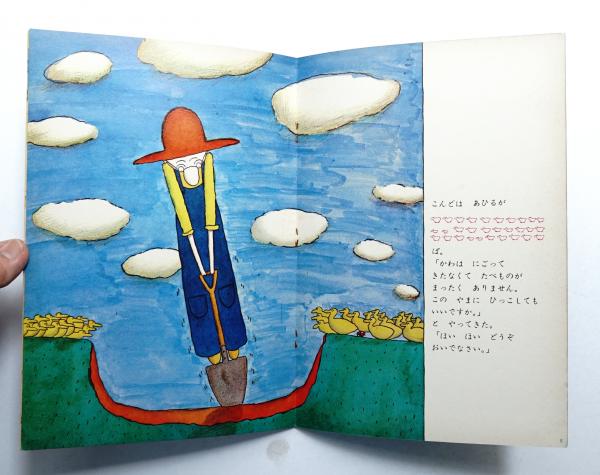 こんどは　あひるが
ば。
「かわは　にごって
きたなくて　たべものが
まったく　ありません。
この　やまに　ひっこしても
いいですか。」
と　やってきた。
「はい　はい　どうぞ
おいでなさい。」